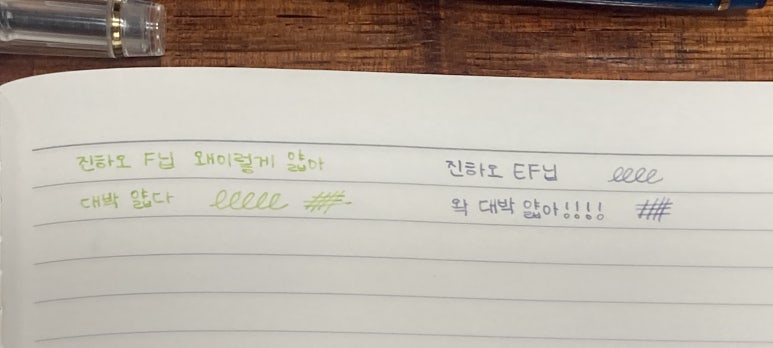 진하오 F닙 왜이렇게 얇아
대박 얇다
진하오 EF닙
왁 대박 얇아!!!!